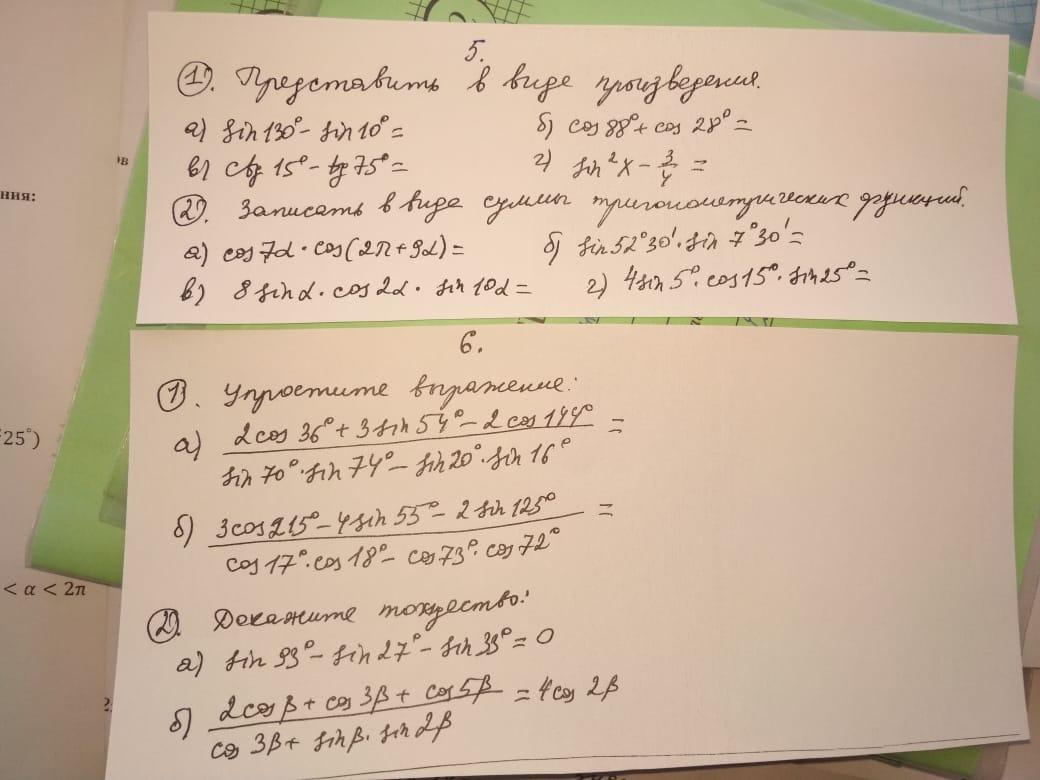 5.
1). Представить в виде произведения.
а) sin130° - sin10° =
б) cos88° + cos 28° =
в) ctg 15° - tg 75° =
г) sin²x - 3/4 =
2). Записать в виде суммы тригонометрических функций.
а) cos7α · cos(2π + 9α) =
б) sin52°30' · sin 7°30' =
в) 8 sinα · cos2α · sin10α =
г) 4sin5° · cos15° · sin25° =
6.
1). Упростите выражение:
а) (2cos 36° + 3sin54° - 2cos144°) / (sin70° · sin74° - sin20° · sin16°) =
б) (3cos215° - 4sin55° - 2sin125°) / (cos17° · cos18° - cos73° · cos72°) =
2). Докажите тождество:
а) sin93° - sin27° - sin33° = 0
б) (2cosβ + cos3β + cos5β) / (cos3β + sinβ · sin2β) = 4cos2β
ния:
25°)
< α < 2π